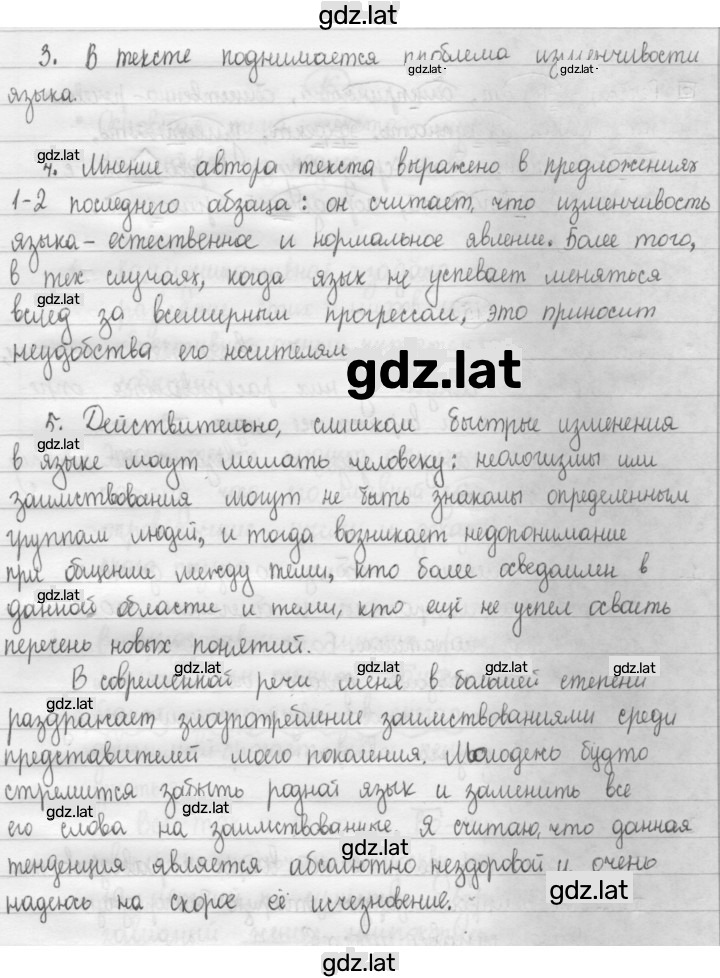 gdz.lat
3. В тексте поднимается проблема изменчивости
gdz.lat gdz.lat
языка.
gdz.lat
4. Мнение автора текста выражено в предложениях
1-2 последнего абзаца: он считает, что изменчивость
языка - естественное и нормальное явление. Более того,
в тех случаях, когда язык не успевает меняться
gdz.lat
вслед за всемирным прогрессом, это приносит
неудобства его носителям
gdz.lat
5. Действительно, слишком быстрые изменения
gdz.lat
в языке могут мешать человеку: неологизмы или
заимствования могут не быть знакомы определенным
группам людей, и тогда возникает недопонимание
при общении между теми, кто более осведомлен в
gdz.lat
данной области и теми, кто ещё не успел освоить
перечень новых понятий.
gdz.lat gdz.lat gdz.lat gdz.lat
В современной речи меня в большей степени
gdz.lat
раздражает злоупотребление заимствованиями среди
представителей моего поколения. Молодежь будто
стремится забыть родной язык и заменить все
gdz.lat gdz.lat
его слова на заимствованные. Я считаю, что данная
gdz.lat
тенденция является абсолютно нездоровой и очень
gdz.lat
надеюсь на скорое её исчезновение.
gdz.lat